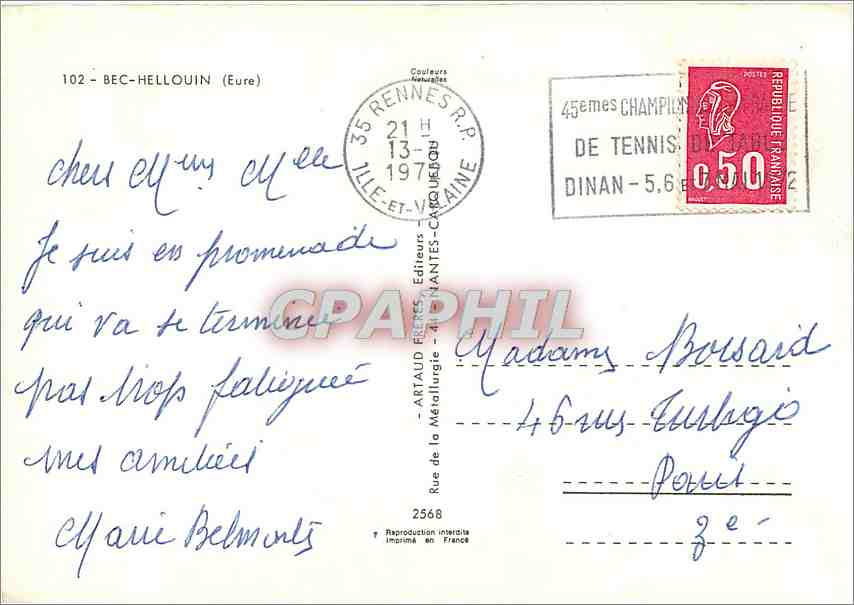 102 - BEC-HELLOUIN (Eure)
Couleurs
Naturelles
35 RENNES R.P.
21 H
13-
197
ILLE-ET-VILAINE
45emes CHAMPI
DE TENNIS DE TABL
DINAN - 5,6 e
POSTES
REPUBLIQUE FRANÇAISE
0,50
chers Mme Melle
Je suis en promenade
qui va se terminer
pas trop fatiguée
mes amitiés
Marie Belmonts
- ARTAUD FRERES, Editeurs -
Rue de la Métallurgie - 44 - NANTES-CARQUEFOU
CPAPHIL
Madame Borsard
46 rue Turbigo
Paris
3e -
2568
Reproduction interdite
Imprimé en France